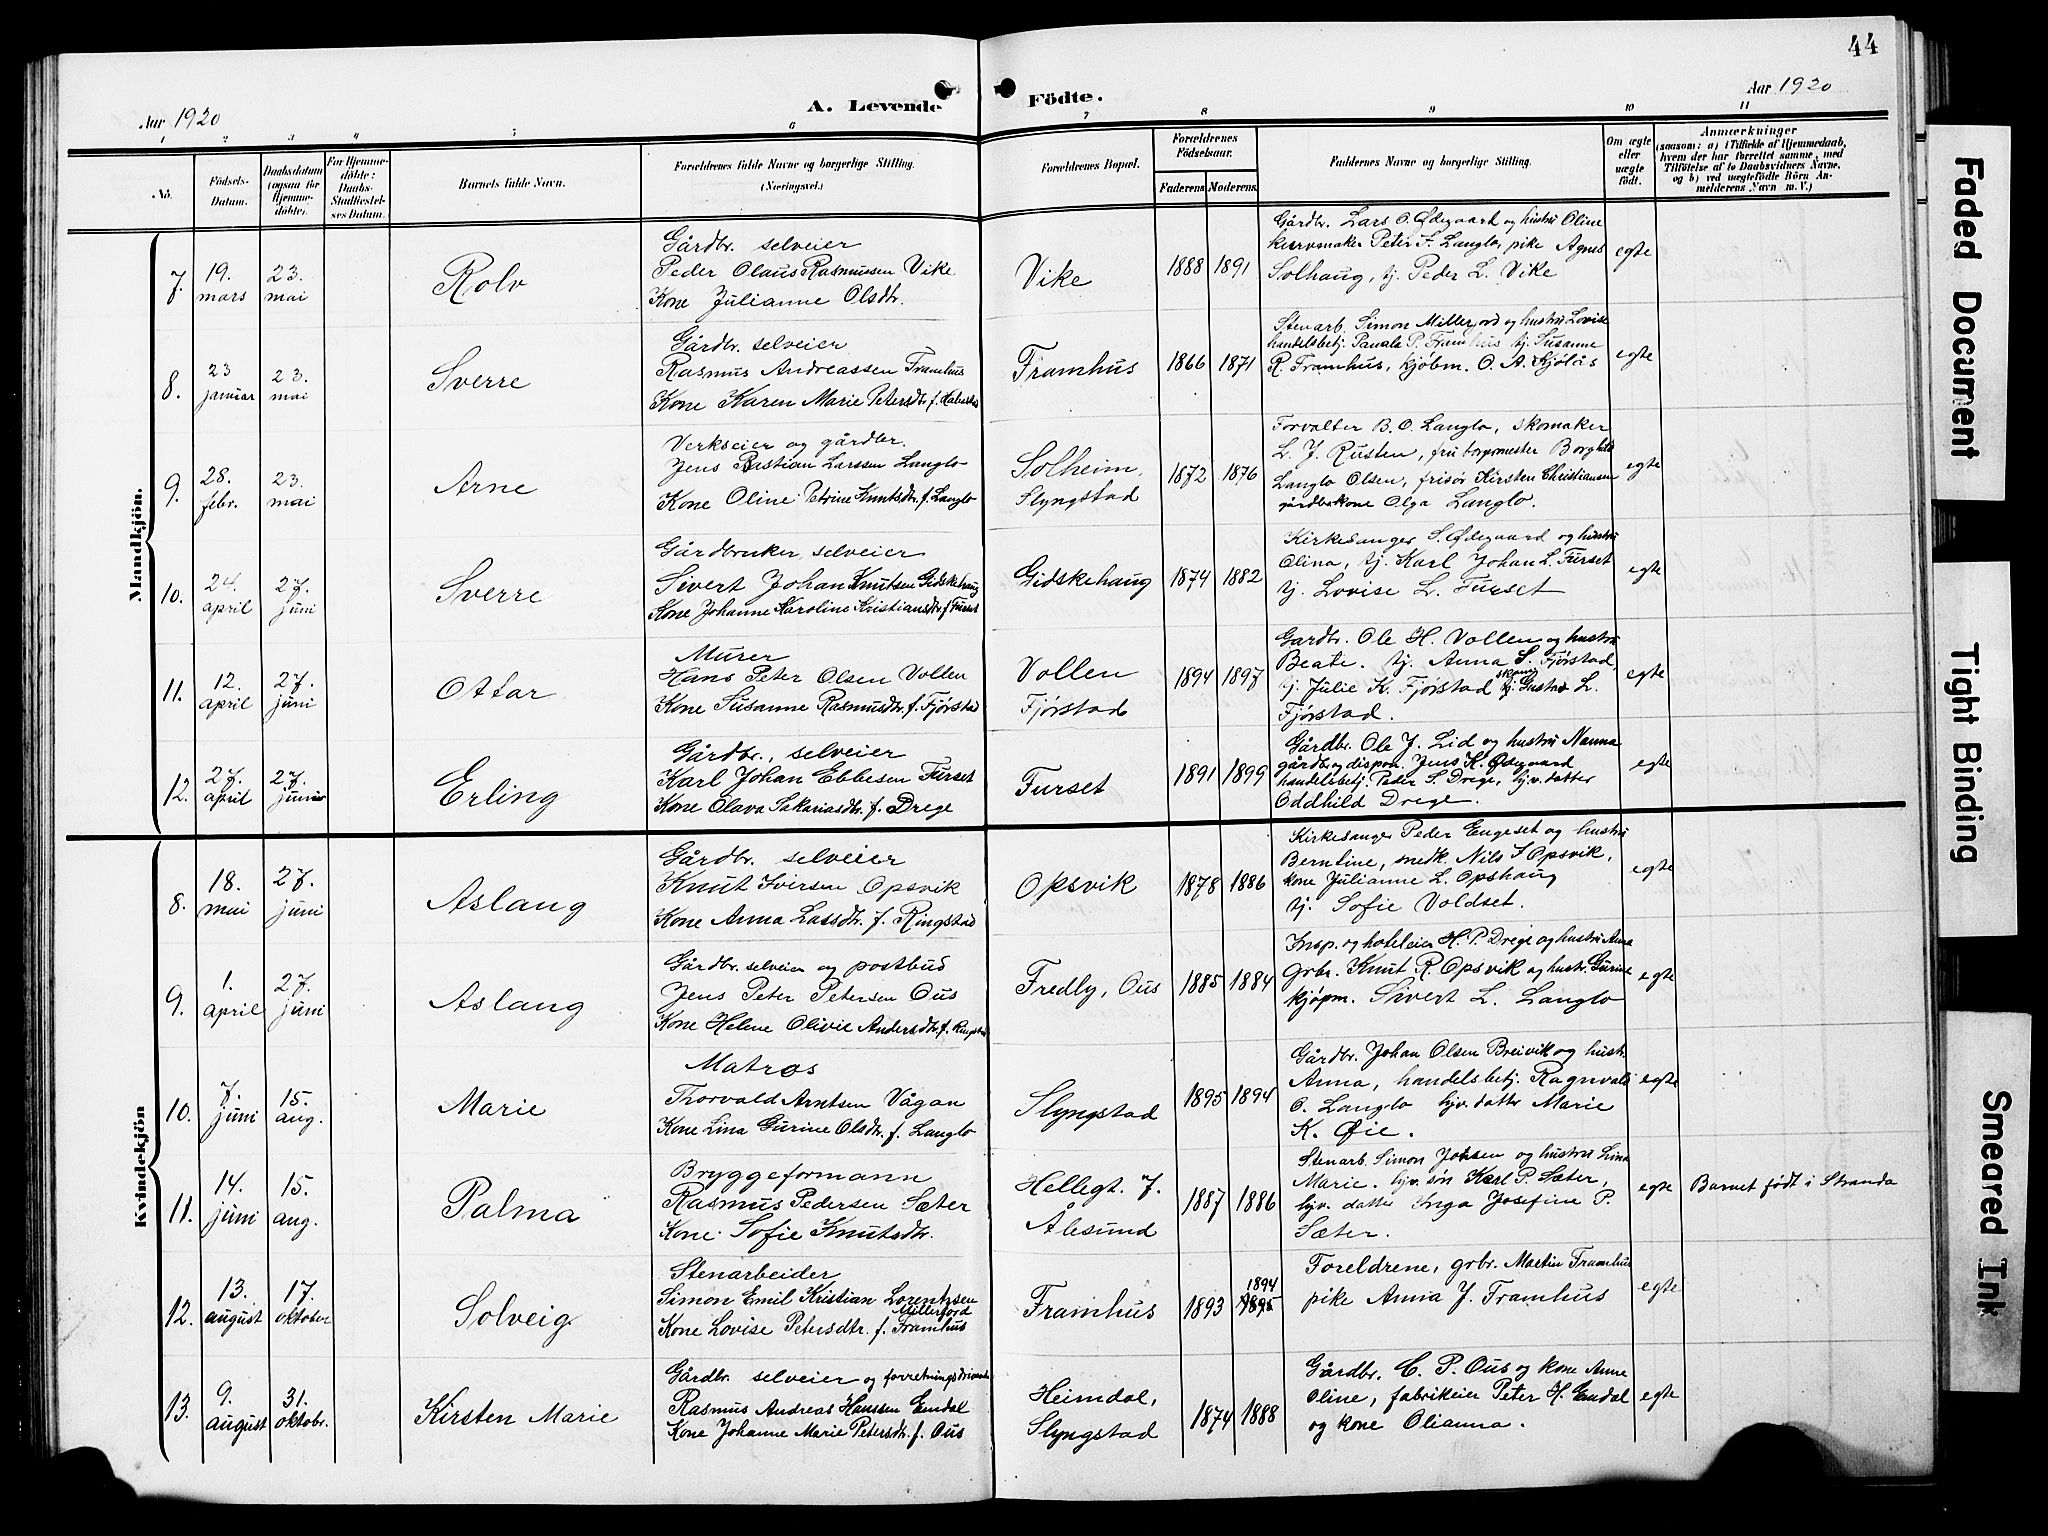 44
Aar 1920
A. Levende Födte.
Aar 1920
1 2 3 4 5 6 7 8 9 10 11
No.
Födsels-
Datum.
Daabsdatum
(ogsaa for
Hjemme-
døbte).
For Hjemme-
döbte:
Daabs-
Stadfæstel-
ses Datum.
Barnets fulde Navn.
Forældrenes fulde Navne og borgerlige Stilling.
(Næringsvei.)
Forældrenes Bopæl.
Forældrenes
Födselsaar.
Faderens Moderens
Faddernes Navne og borgerlige Stilling.
Om ægte
eller
uægte
født.
Anmærkninger
(saasom: a) i Tilfælde af Hjemmedaab,
hvem der har forrettet samme, med
Tilföielse af to Daabsvidners Navne,
og b) ved uægtefödte Börn An-
melderens Navn m. V.)
Mandkjön.
7. 19. mars
23. mai
Rolv
Gårdbr. selveier
Peder Olaus Rasmussen Vike
Kone Julianne Olsdtr.
Vike
1888 1891
Gårdbr. Lars O. Ødegaard og hustru Oline
kurvmaker Peter J. Langlo, pike Agnes
Solhaug, tj. Peder L. Vike
egte
8. 23 januar
23. mai
Sverre
Gårdbr. selveier
Rasmus Andreassen Framhus
Kone Karen Marie Petersdtr. f.
Framhus
1866 1871
Stenarb. Simon Millerjord og hustru Lovise
handelsbetj. Paula P. Framhus tj. Susanne
R. Framhus, kjøbm. O. A. Kjølås
egte
9. 28. febr.
23. mai
Arne
Verkseier og gårdbr.
Jens Bastian Larssen Langlo
Kone Oline Petrine Knutsdtr. f. Langlo
Solheim,
Slyngstad
1872 1876
Forvalter B. O. Langlo, skomaker
L. J. Rusten, fru borgermester Borghild
Langlo Olsen, frisör Kirsten Christiansen
gårdbrkone Olga Langlo.
egte
10. 24. april
27. juni
Sverre
Gårdbruker, selveier
Sivert Johan Knutsen Gidskehaug
Kone Johanne Karoline Kristiansdtr f. Furset
Gidskehaug
1874 1882
Kirkesanger S. Ødegaard og hustru
Olina, tj. Karl Johan L. Furset
tj. Lovise L. Furset
egte
11. 12. april
27. juni
Ottar
Murer
Hans Peter Olsen Vollen
Kone Susanne Rasmusdtr. f. Fjørstad
Vollen
Fjørstad
1894 1897
Gardbr. Ole H. Vollen og hustru
Beate. tj. Anna S. Fjørstad,
tj. Julie K. Fjørstad tj. Gustav L.
Fjørstad.
egte
12. 27. april
27. juni
Erling
Gårdbr., selveier
Karl Johan Ebbesen Furset
Kone Olava Sakariasdtr. f. Drege
Furset
1891 1899
Gårdbr. Ole J. Lid og hustru Nanna
gårdbr og dispon. Jens K. Ødegaard
handelsbetj. Peder S. Drege, hjv. datter
Oddhild Drege.
egte
Kvindekjön
8. 18. mai
27. juni
Aslaug
Gårdbr. selveier
Knut Iversen Opsvik
Kone Anna Lassdtr. f. Ringstad
Opsvik
1878 1886
Kirkesanger Peder Engeset og hustru
Berntine, snedk. Nils I Opsvik,
kone Julianne L. Opshaug
tj. Sofie Voldset.
egte
9. 1. april
27. juni
Aslaug
Gårdbr. selveier og postbud
Jens Peter Petersen Ous
Kone Helene Olivie Andersdtr. f. Ringstad
Fredly, Ous
1885 1884
Insp. og hoteleier H. P. Drege og hustru Anna
grbr. Knut R. Opsvik og hustr. Gurine
kjøpm. Sivert L. Langlo
egte
10. 7. juni
15. aug.
Marie
Matros
Thorvald Arntsen Vågan
Kone Lina Gurine Olsdtr. f. Langlo
Slyngstad
1895 1894
Gårdbr. Johan Olsen Breivik og hustr.
Anna, handelsbetj. Ragnvald
O. Langlo hjv. datter Marie
K. Øie.
egte
11. 14. juni
15. aug.
Palma
Bryggeformann
Rasmus Pedersen Sæter
Kone Sofie Knutsdtr.
Hellegt. 7.
Ålesund
1887 1886
Stenarb. Simon Johsen og hustru Lina
Marie. hjv. søn Karl P. Sæter,
hjv. datter Inga Josefine P.
Sæter.
egte
Barnet født i Stranda
12. 13. august
17. oktober
Solveig
Stenarbeider
Simon Emil Kristian Lorentzsen
Millerjord
Kone Lovise Petersdtr. f. Framhus
Framhus
1893 1894 1895
Foreldrene, grbr. Martin Framhus
pike Anna J. Framhus
egte
13. 9. august
31. oktobr.
Kirsten Marie
Gårdbr. selveier og forretningsdrivende
Rasmus Andreas Hanssen Emdal
Kone Johanne Marie Petersdtr. f. Ous
Heimdal,
Slyngstad
1874 1888
Gårdbr. C. P. Ous og kone Anne
Oline, fabrikeier Peter H. Emdal
og kone Olianna.
egte
Faded Document
Tight Binding
Smeared Ink